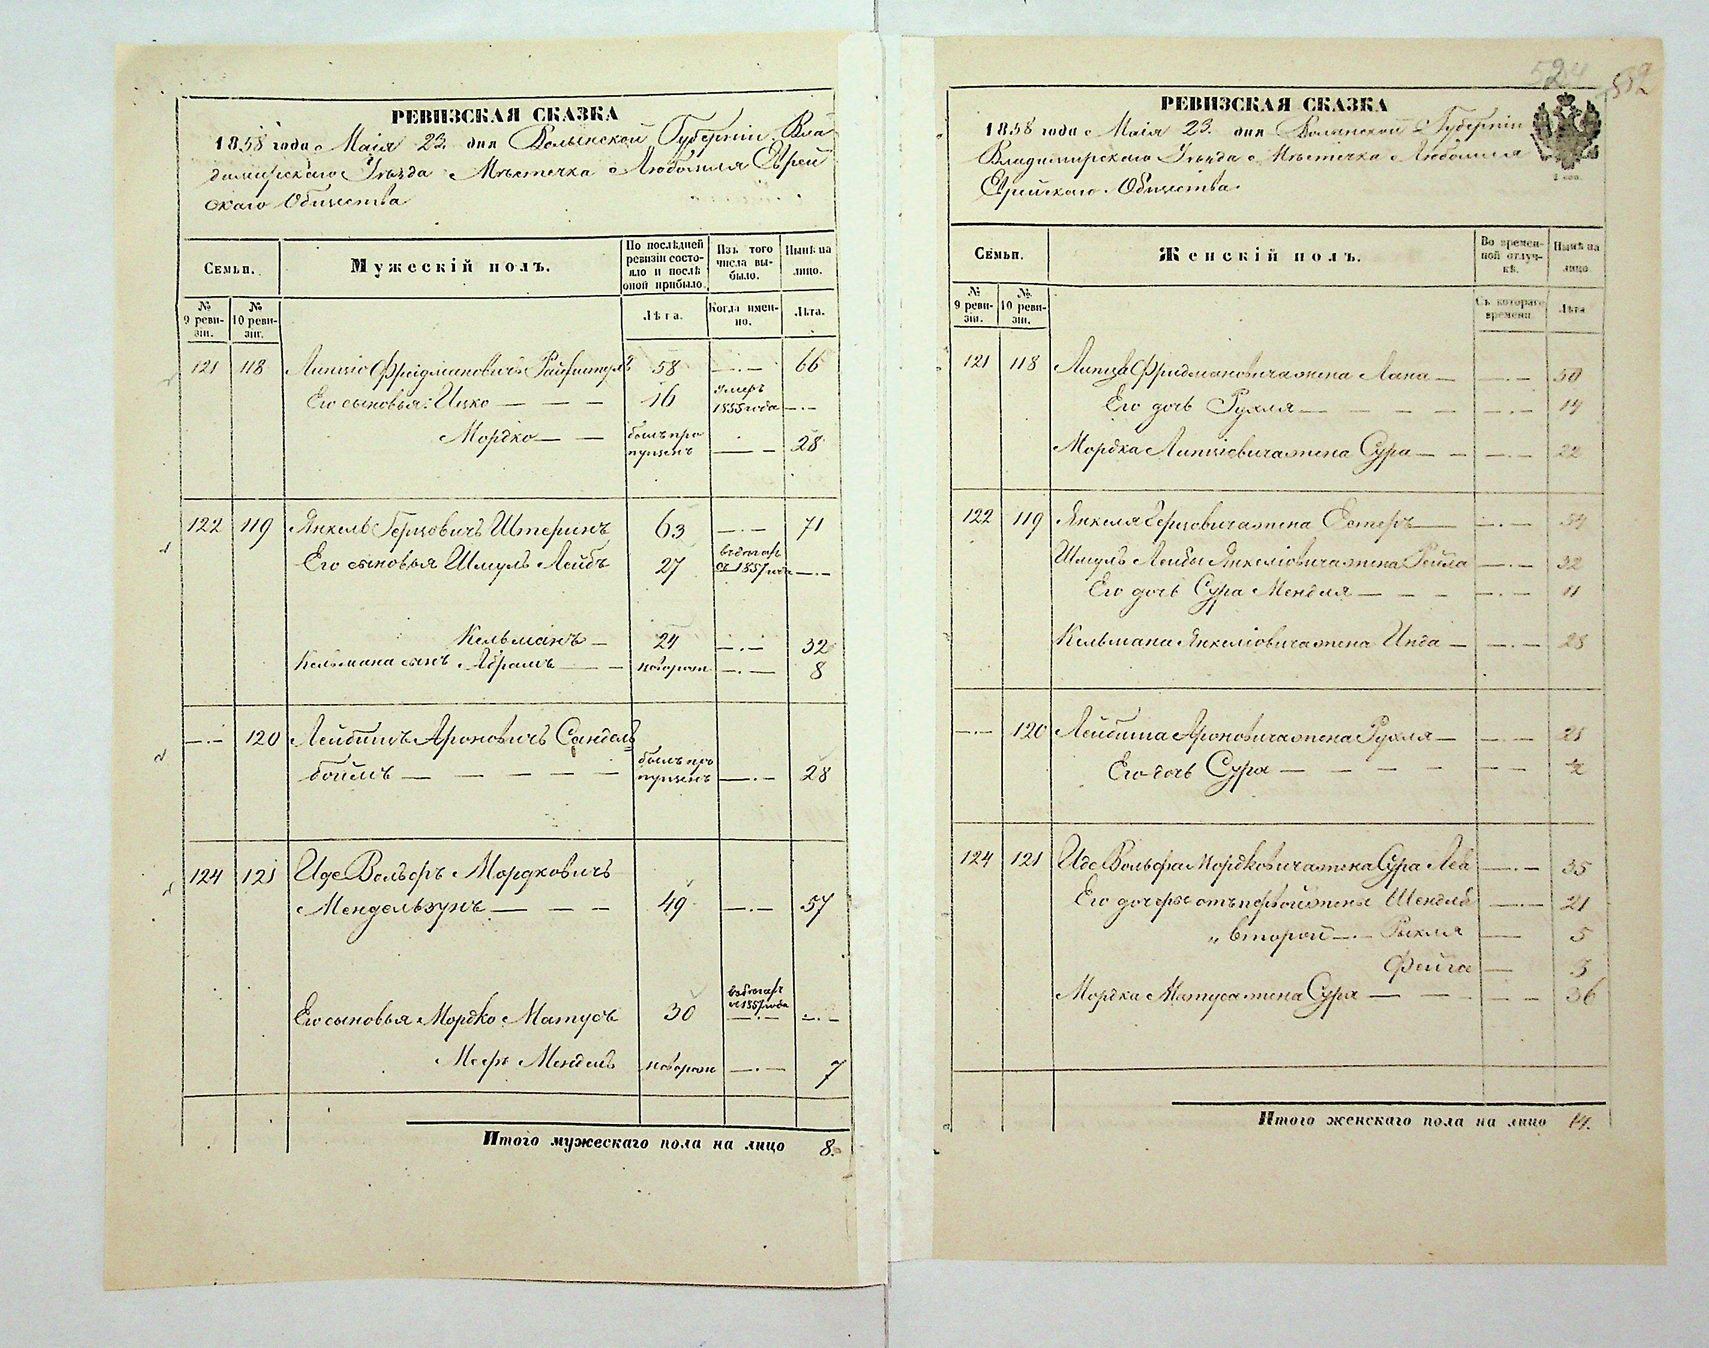 РЕВИЗСКАЯ СКАЗКА
1858 года Маія 23 дня Волынской Губерніи Вла
димирскаго Уѣзда Мѣстечка Любомля Еврей
скаго Общества
Семьи.
Мужескій полъ.
По послѣдней ревизіи состояло и послѣ оной прибыло.
Изъ того числа выбыло.
Нынѣ на лицо.
№ 9 ревизіи.
№ 10 ревизіи.
Лѣта.
Когда именно.
Лѣта.
121 118 Липшо Фридмановичъ 58 —·— 66
Его сыновья: Ицко — — — 16 умеръ 1855 года —·—
Мордко — — былъ пропущенъ — — 28
122 119 Янкель Герцовичъ Штеринъ 63 —·— 71
Его сыновья Шмуль Лейбъ 27 с 1857 года —·—
Кельманъ — 24 —·— 32
Кельмана сынъ Абрамъ — — новорож —·— 8
—·— 120 Лейбишъ Ароновичъ Сандель
боймъ — — — — — былъ пропущенъ —·— 28
124 121 Иде Вольфъ Мордковичъ
Мендельзунъ — — — 49 —·— 57
Его сыновья Мордко Матусъ 30 с 1857 года —·— —·—
Мееръ Мендель новорож —·— 7
Итого мужескаго пола на лицо 8.
524
РЕВИЗСКАЯ СКАЗКА
1858 года Маія 23. дня Волынской Губерніи
Владимирскаго Уѣзда Мѣстечка Любомля
Еврейскаго Общества.
Семьи.
Женскій полъ.
Во временной отлучкѣ.
Нынѣ на лицо
№ 9 ревизіи.
№ 10 ревизіи.
Съ котораго времени
Лѣта
121 118 Фридмановича жена Лана — —·— 50
Его дочь Рухля — — — — —·— 14
Мордка Липшовича жена Сура — — —·— 22
122 119 Янкеля Герцовича жена Естеръ — —·— 54
Шмуль Лейбы Янкеліовича жена Рейла —·— 32
Его дочь Сура Мендля — — — —·— 11
Кельмана Янкеліовича жена Инда — —·— 28
—·— 120 Лейбиша Ароновича жена Рухля — —·— 21
Его дочь Сура — — — — — —
124 121 Иде Вольфа Мордковича жена Сура Леа —·— 35
Его дочери отъ первой жены Шендля —·— 21
„ второй —·— Рыхля — 5
Фейга — 3
Мордка Матуса жена Сура — — — — — 36
Итого женскаго пола на лицо 14.